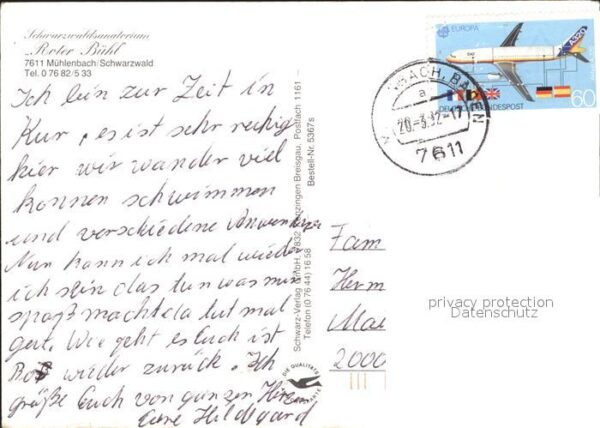 Schwarzwaldsanatorium
Roter Bühl
7611 Mühlenbach/Schwarzwald
Tel. 0 76 82/5 33
Ich bin zur Zeit in
Kur, es ist sehr ruhig
hier wir wander viel
konnen schwimmen
und verschiedene
Nun kann ich mal wieder
ich sein das tun was mir
spaß macht tut mal
gut. Wie geht es Euch ist
wieder zurück. Ich
grüße Euch von ganzen Herzen
Eure Hildgard
Schwarz-Verlag GmbH, 7832 Kenzingen Breisgau, Postfach 1161
Telefon (0 76 44) 16 58
Bestell-Nr. 5367s
DIE QUALITÄTS
KARTE
EUROPA
A320
60
DEUTSCHE BUNDESPOST
BACH, BADEN
a
20.-3.92-17
7611
Fam
Herm
Mai
2000
privacy protection
Datenschutz